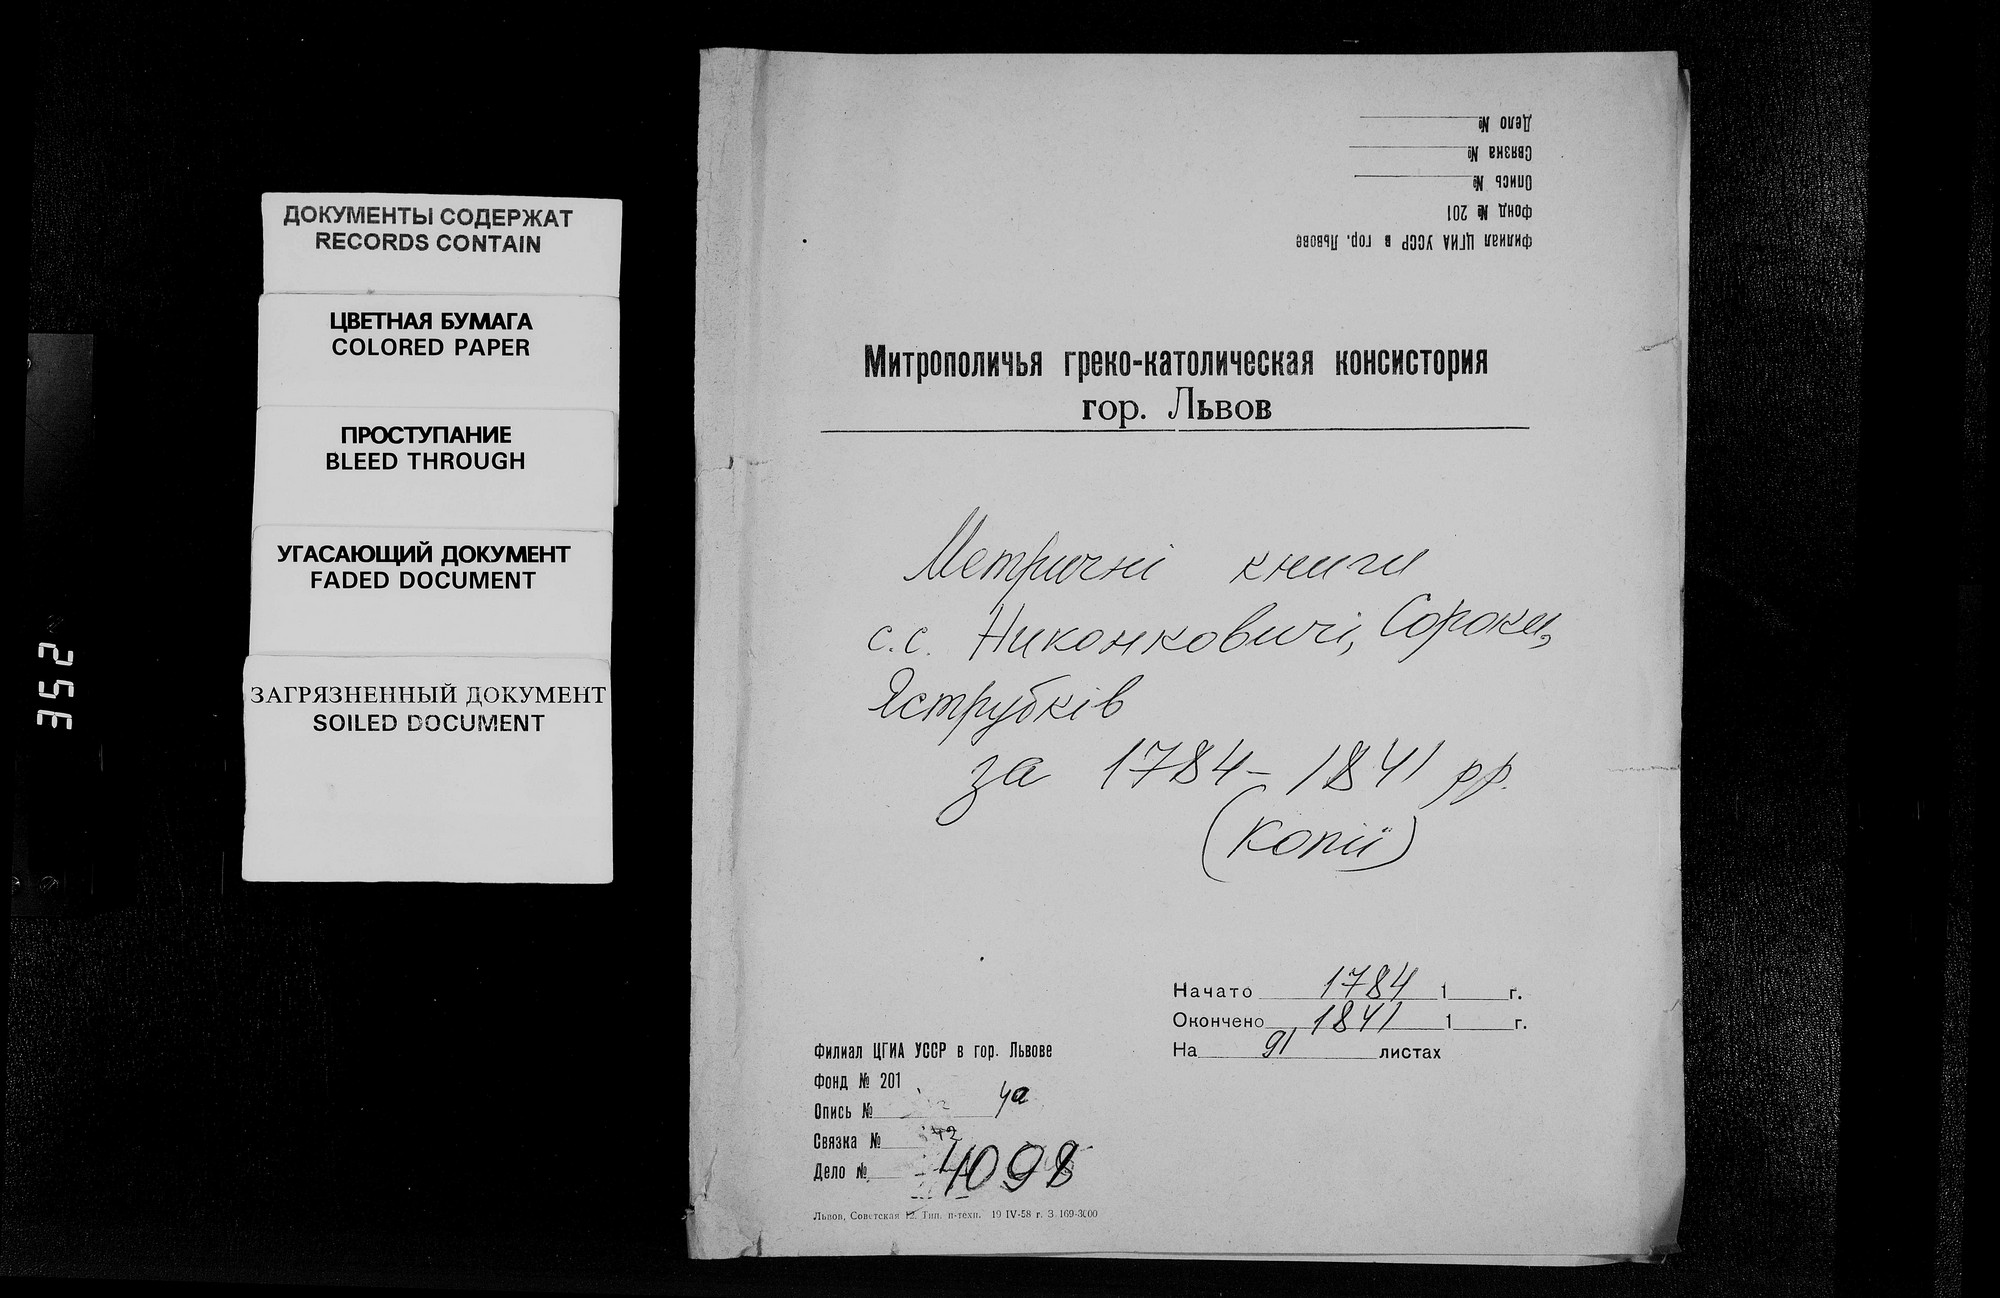 ДОКУМЕНТЫ СОДЕРЖАТ
RECORDS CONTAIN
ЦВЕТНАЯ БУМАГА
COLORED PAPER
ПРОСТУПАНИЕ
BLEED THROUGH
УГАСАЮЩИЙ ДОКУМЕНТ
FADED DOCUMENT
ЗАГРЯЗНЕННЫЙ ДОКУМЕНТ
SOILED DOCUMENT
352
Филиал ЦГИА УССР в гор. Львове
Фонд № 201
Опись №
Связка №
Дело №
Митрополичья греко-католическая консистория
гор. Львов
Метричні книги
с.с. Никонковичі, Сороки,
Яструбків
за 1784-1841 рр.
(копії)
Начато 1784 1 г.
Окончено 1841 1 г.
На 91 листах
Филиал ЦГИА УССР в гор. Львове
Фонд № 201
Опись № 4а
Связка №
Дело № 4098
Львов, Советская Тип. н-техн. 19 IV-58 г. З. 169-3000